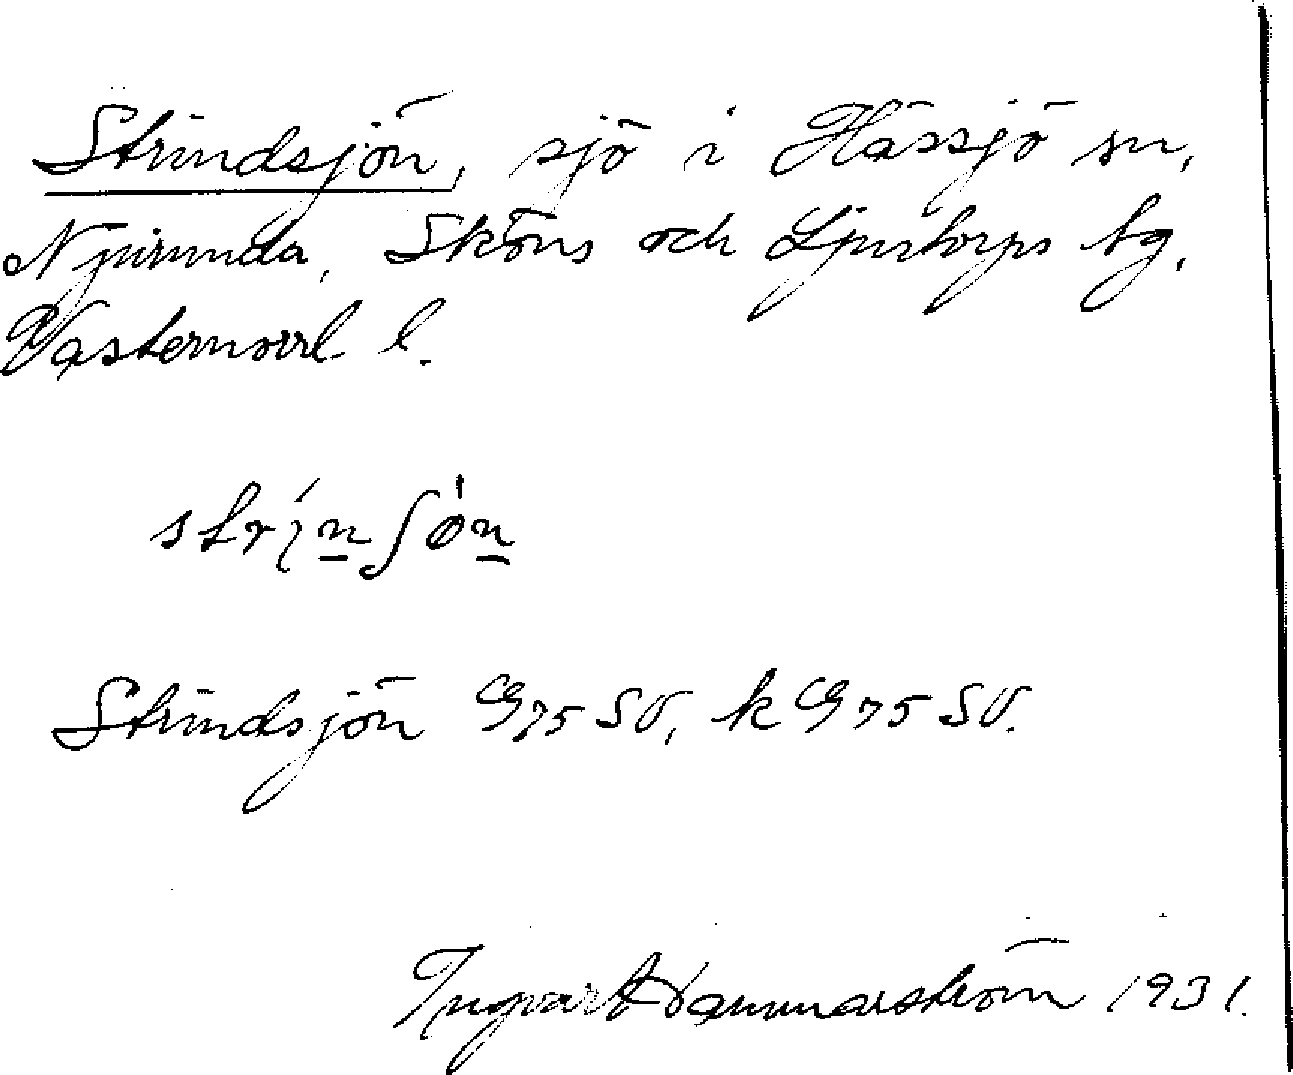 Strindsjön, sjö i Hässjö sn,
Njurunda, Sköns och Ljustorps tg,
Västernorrl. l.
strin̲ʃön̲
Strindsjön G75 SV, k G75 SV.
Ingvar Hammarström 1931.